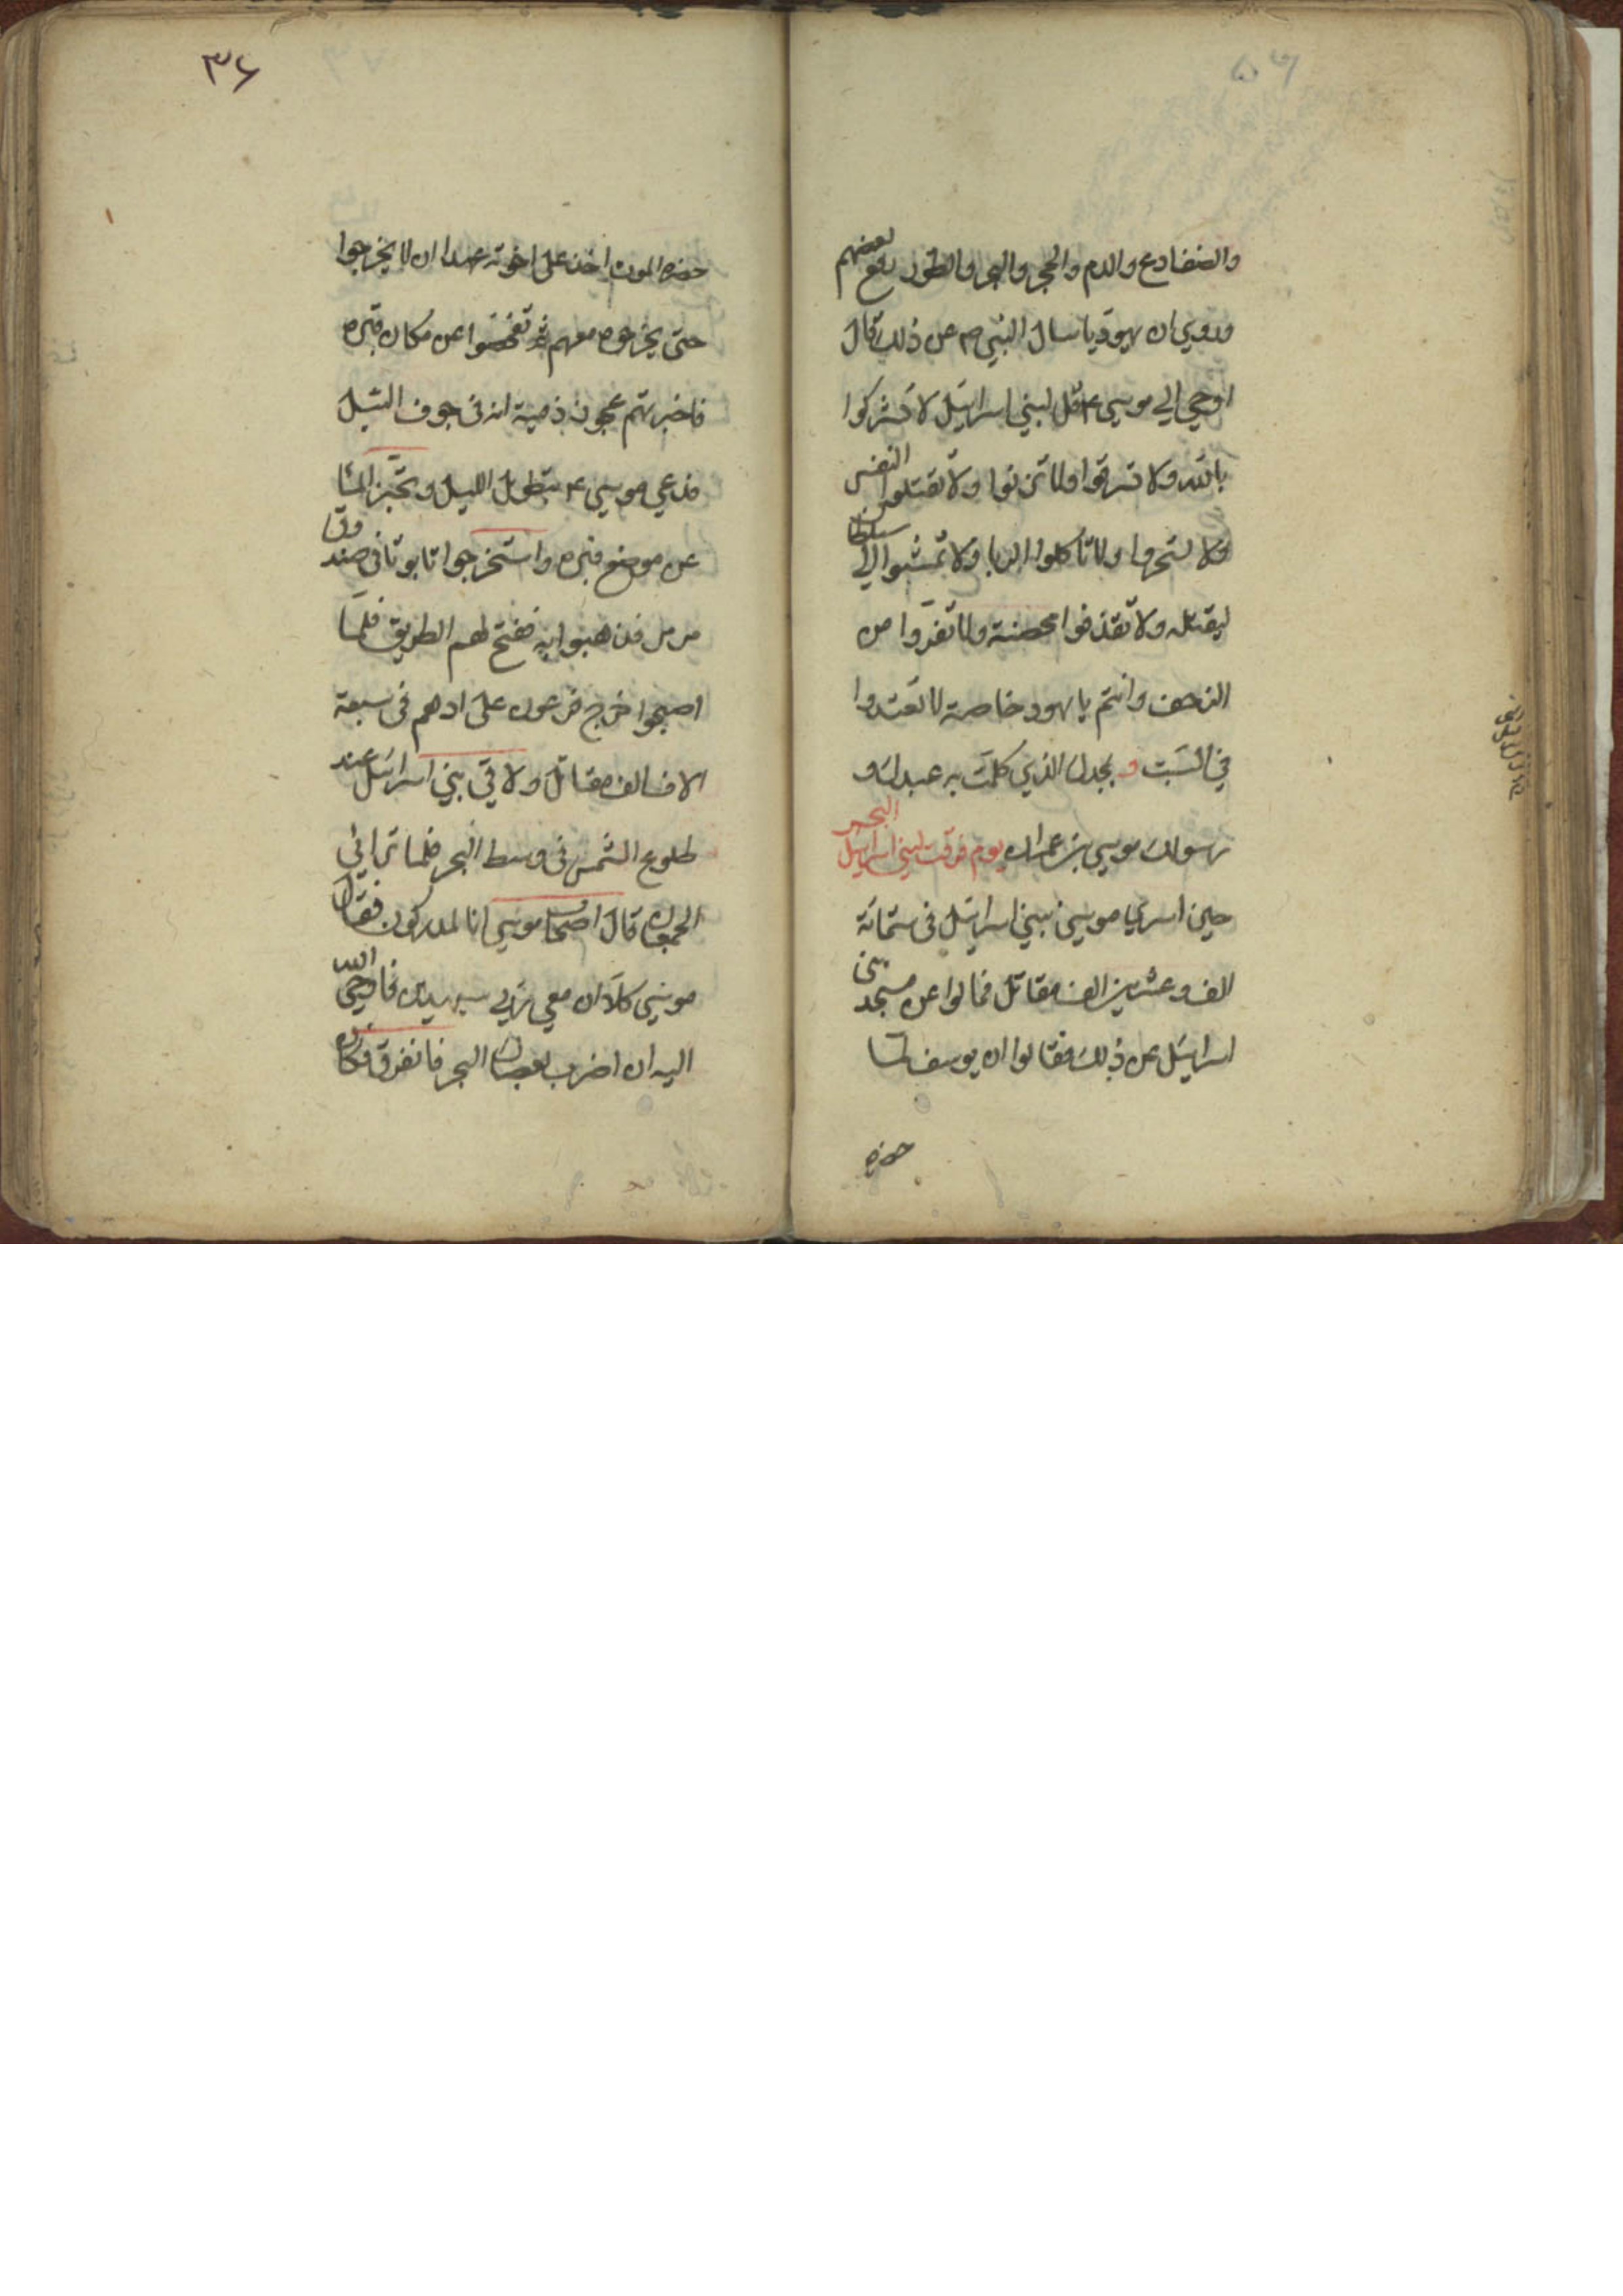 والضفادع والدم والحجر والبحر والطور رفع بعضهم
وروي ان يهوديا سال النبي ص عن ذلك قال
اوحي الي موسي ع قل لبني اسرائيل لا تشركوا
بالله ولا تسرقوا ولا تزنوا ولا تقتلوا النفس
ولا تسحروا ولا تاكلوا الربا ولا تمشوا الي سلطان
ليقتله ولا تقذفوا محصنة ولا تفروا من
الزحف وانتم يا يهود خاصة لا تعتدوا
في السبت و بمجدك الذي كلمت به عبدك و
رسولك موسي بن عمران يوم فرقت لبني اسرائيل البحر
حين اسري موسي ببني اسرائيل في ستمائة
الف وعشرين الف مقاتل فمالوا عن مسجد بني
اسرائيل عن ذلك فقالوا ان يوسف لما
حضره
٣۶
حضره الموت اخذ علي اخوته عهدا ان لا يخرجوا
حتي يخرجوه معهم ثم تفحصوا عن مكان قبره
فاخبرتهم عجوز ذمية انه في جوف النيل
فدعي موسي ع بتطويل الليل و الما
عن موضع قبره واستخرجوا تابوتا في صندوق
مرمر فذهبوا به ففتح لهم الطريق فلما
اصبحوا خرج فرعون علي ادهم في سبعة
الاف الف مقاتل ولاقي بني اسرائيل عند
طلوع الشمس في وسط البحر فلما تراءي
الجمعان قال اصحاب موسي انا لمدركون فقال
موسي كلا ان معي ربي سيهدين فاوحي الله
اليه ان اضرب بعصاك البحر فانفرق فكان